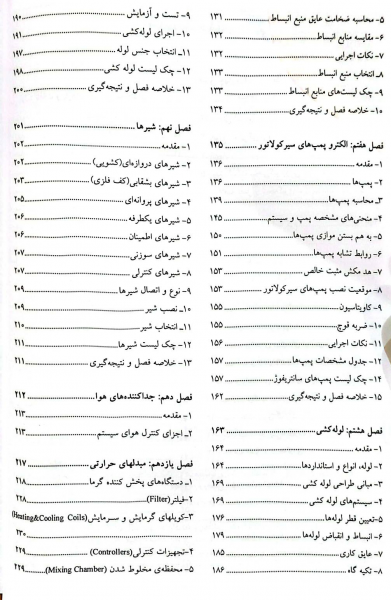 ۵- محاسبه ضخامت عایق منبع انبساط ۱۳۱
۶- مقایسه منابع انبساط ۱۳۲
۷- نکات اجرایی ۱۳۲
۸ـ انتخاب منبع انبساط ۱۳۳
۹- چک لیست‌های منابع انبساط ۱۳۳
۱۰- خلاصه فصل و نتیجه‌گیری ۱۳۴
فصل هفتم: الکترو پمپ‌های سیرکولاتور ۱۳۵
۱- مقدمه ۱۳۶
۲- پمپ‌ها ۱۳۶
۳ـ محاسبه پمپ‌ها ۱۳۹
۴- منحنی‌های مشخصه پمپ و سیستم ۱۴۵
۵- به هم بستن موازی پمپ‌ها ۱۵۰
۶- روابط تشابه پمپ‌ها ۱۵۱
۷- هد مکش مثبت خالص ۱۵۳
۸- موقعیت نصب پمپ‌های سیرکولاتور ۱۵۳
۹- کاویتاسیون ۱۵۵
۱۰- ضربه قوچ ۱۵۵
۱۱- نکات اجرایی ۱۵۶
۱۲- جدول مشخصات پمپ‌ها ۱۵۷
۱۴- چک لیست پمپ‌های سانتریفوژ ۱۵۷
۱۵- خلاصه فصل و نتیجه‌گیری ۱۶۲
فصل هشتم: لوله‌کشی ۱۶۳
۱- مقدمه ۱۶۴
۲- لوله، انواع و استانداردها ۱۶۴
۳- مبانی طراحی لوله کشی ۱۶۹
۴- سیستم‌های لوله کشی ۱۶۹
۵-تعیین قطر لوله‌ها ۱۷۶
۶- انبساط و انقباض لوله‌ها ۱۷۹
۷- عایق کاری ۱۸۵
۸- تکیه گاه ۱۸۶
۹- تست و آزمایش ۱۹۰
۱۰- اجرای لوله‌کشی ۱۹۱
۱۱- انتخاب جنس لوله ۱۹۷
۱۲- چک لیست لوله کشی ۱۹۸
۱۳- خلاصه فصل و نتیجه‌گیری ۲۰۰
فصل نهم: شیرها ۲۰۱
۱- مقدمه ۲۰۲
۲- شیرهای دروازه‌ای(کشویی) ۲۰۲
۳- شیرهای بشقابی(کف فلزی) ۲۰۳
۴- شیرهای پروانه‌ای ۲۰۵
۵- شیرهای یکطرفه ۲۰۶
۶- شیرهای اطمینان ۲۰۶
۷- شیرهای سوزنی ۲۰۷
۸- شیرهای کنترلی ۲۰۷
۹- نوع و اتصال شیرها ۲۰۹
۱۰ـ نصب شیر ۲۰۹
۱۱- انتخاب شیر ۲۱۰
۱۲- چک لیست شیرها ۲۱۱
۱۳- خلاصه فصل و نتیجه‌گیری ۲۱۱
فصل دهم: جداکننده‌های هوا ۲۱۲
۱- مقدمه ۲۱۳
۲- اجزای کنترل هوای سیستم ۲۱۳
فصل یازدهم: مبدلهای حرارتی ۲۱۷
۱- دستگاه‌های پخش کننده گرما ۲۱۸
۲-فیلتر(Filter) ۲۲۸
۳-کویلهای گرمایش و سرمایش(Heating&Cooling Coils)
۲۳۰
۴-تجهیزات کنترلی(Controllers) ۲۲۹
۵- محفظه‌ی مخلوط شدن (Mixing Chamber) ۲۲۹